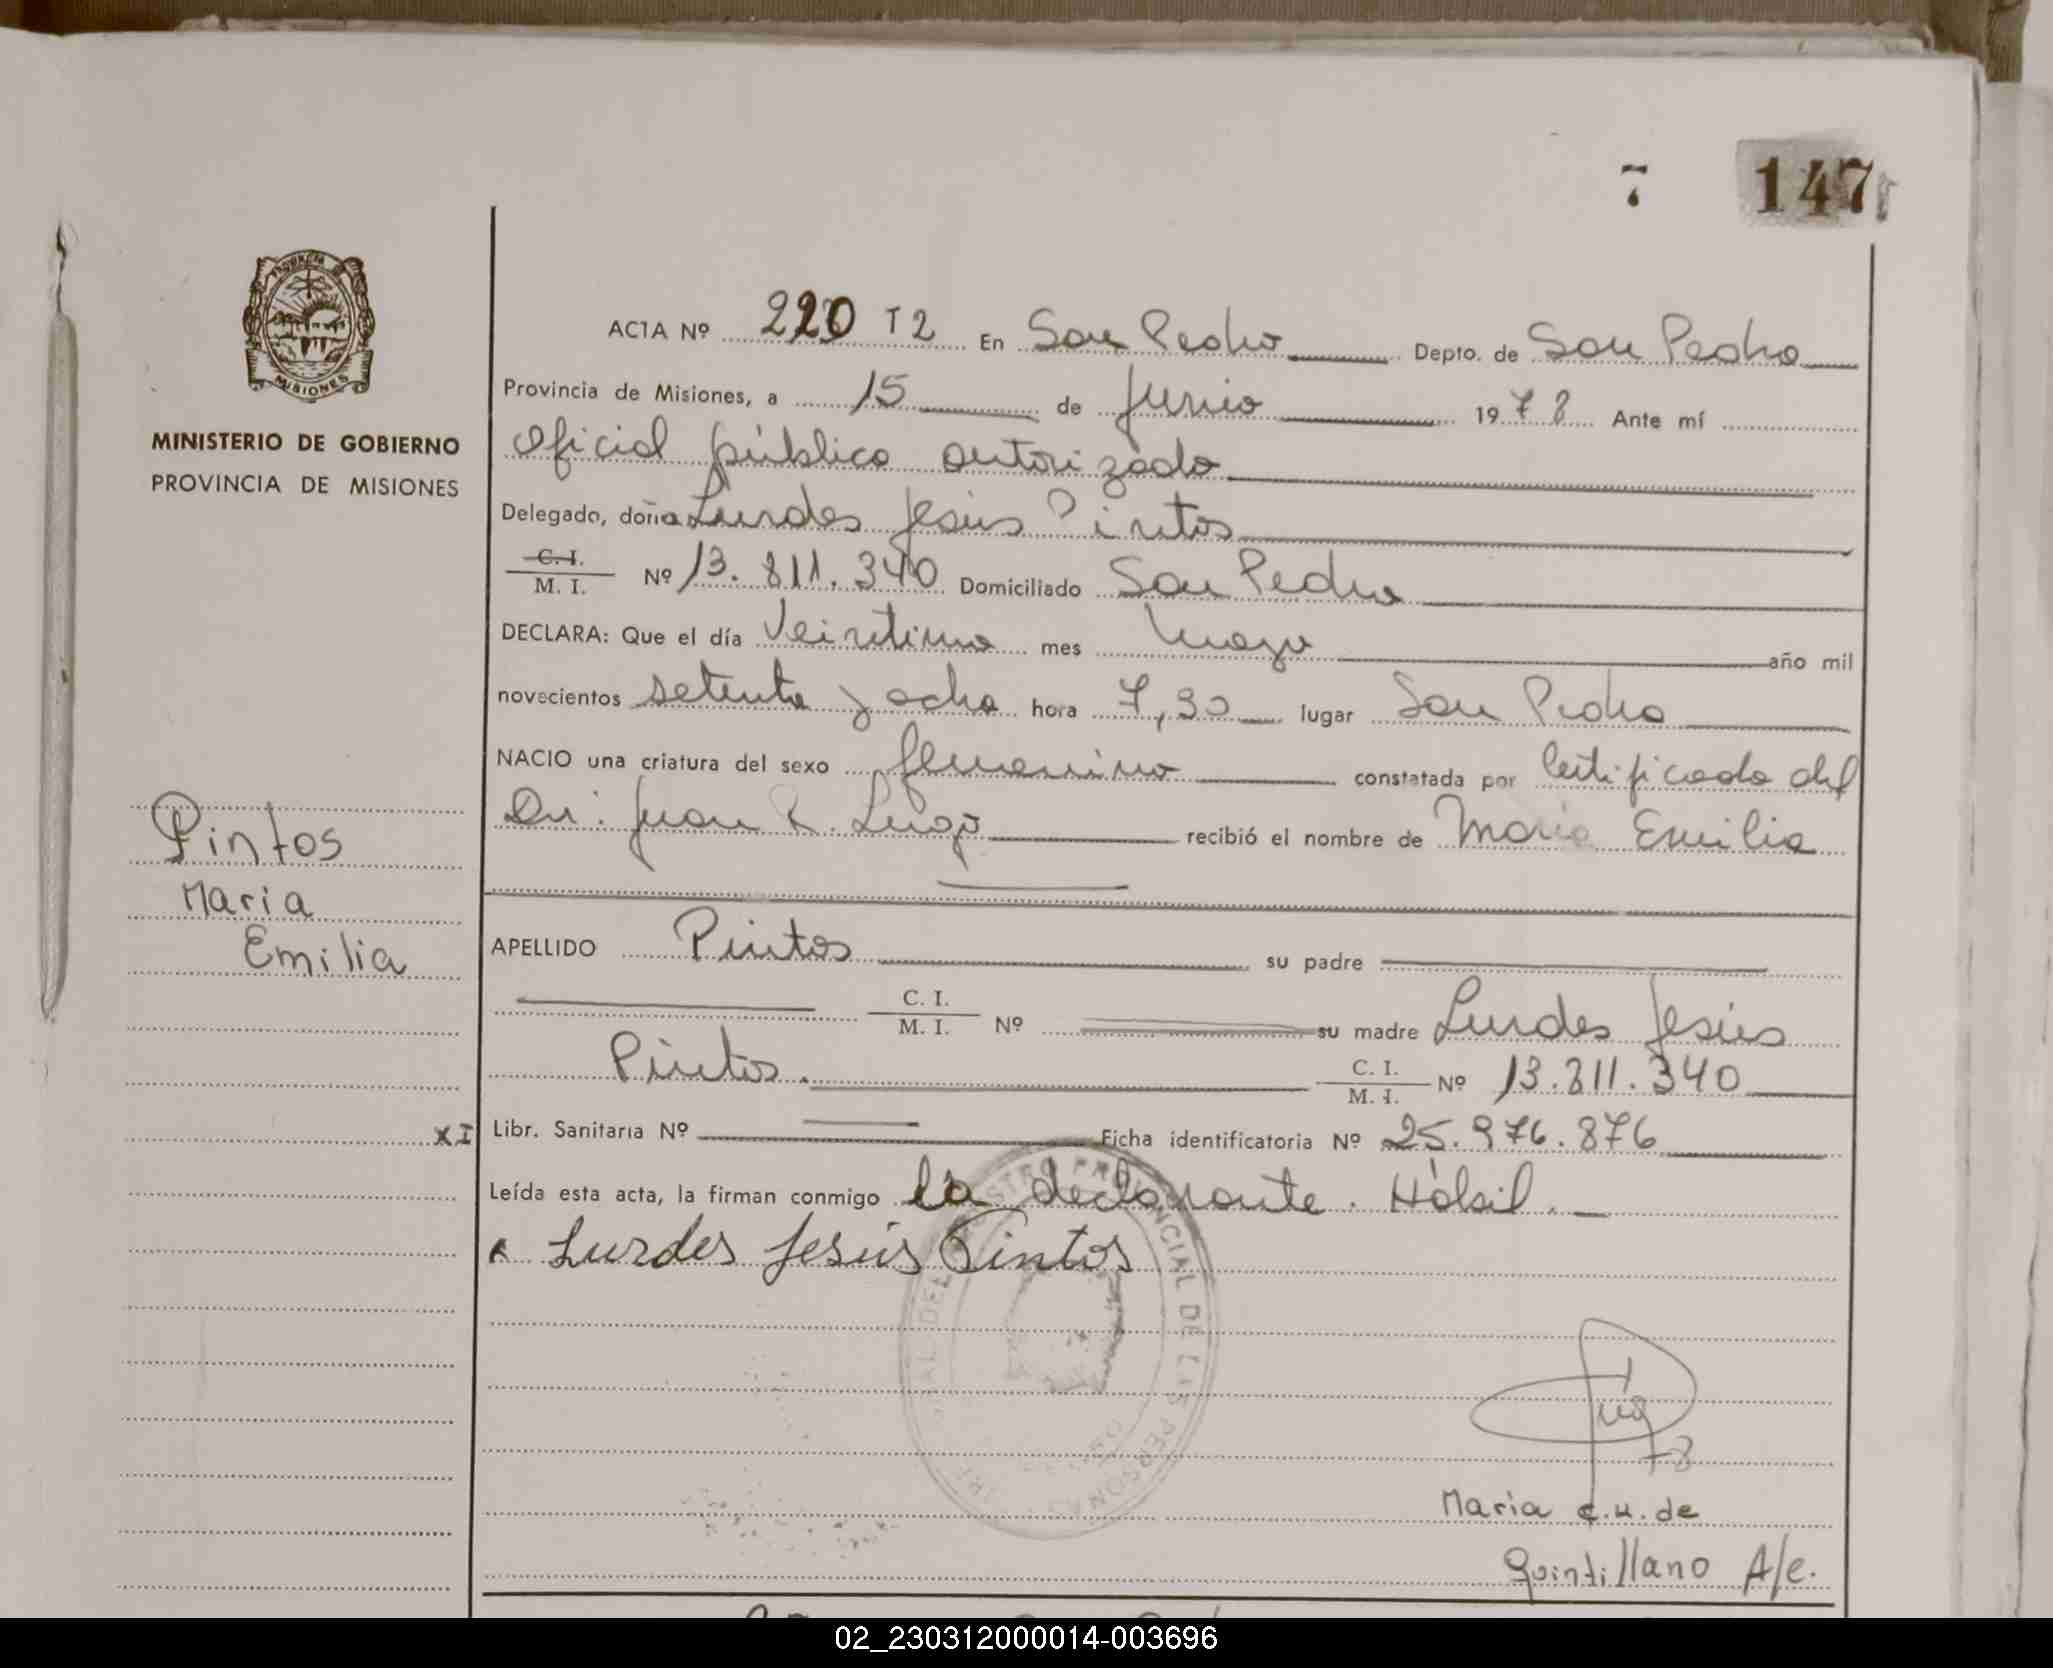 7 147
ACTA Nº 220 T2 En San Pedro Depto. de San Pedro
Provincia de Misiones, a 15 de Junio 1978 Ante mí
Oficial público autorizado
Delegado, doña Lurdes Jesús Pintos
C.I. M. I. Nº 13.811.340 Domiciliado San Pedro
DECLARA: Que el día Veintiuno mes Mayo año mil
novecientos setenta y ocho hora 7,30 lugar San Pedro
NACIO una criatura del sexo femenino constatada por Certificado del
Dr. Juan R. Lugo recibió el nombre de María Emilia
APELLIDO Pintos su padre
C. I. M. I. Nº su madre Lurdes Jesús
Pintos. C. I. M. I. Nº 13.811.340
Libr. Sanitaria Nº Ficha identificatoria Nº 25.976.876
Leída esta acta, la firman conmigo la declarante. Hábil.
Lurdes Jesús Pintos
María C.U. de
Quintillano A/e.
PROVINCIA
MISIONES
MINISTERIO DE GOBIERNO
PROVINCIA DE MISIONES
Pintos
María
Emilia
XI
PROVINCIAL DE LAS PERSONAS
02_230312000014-003696